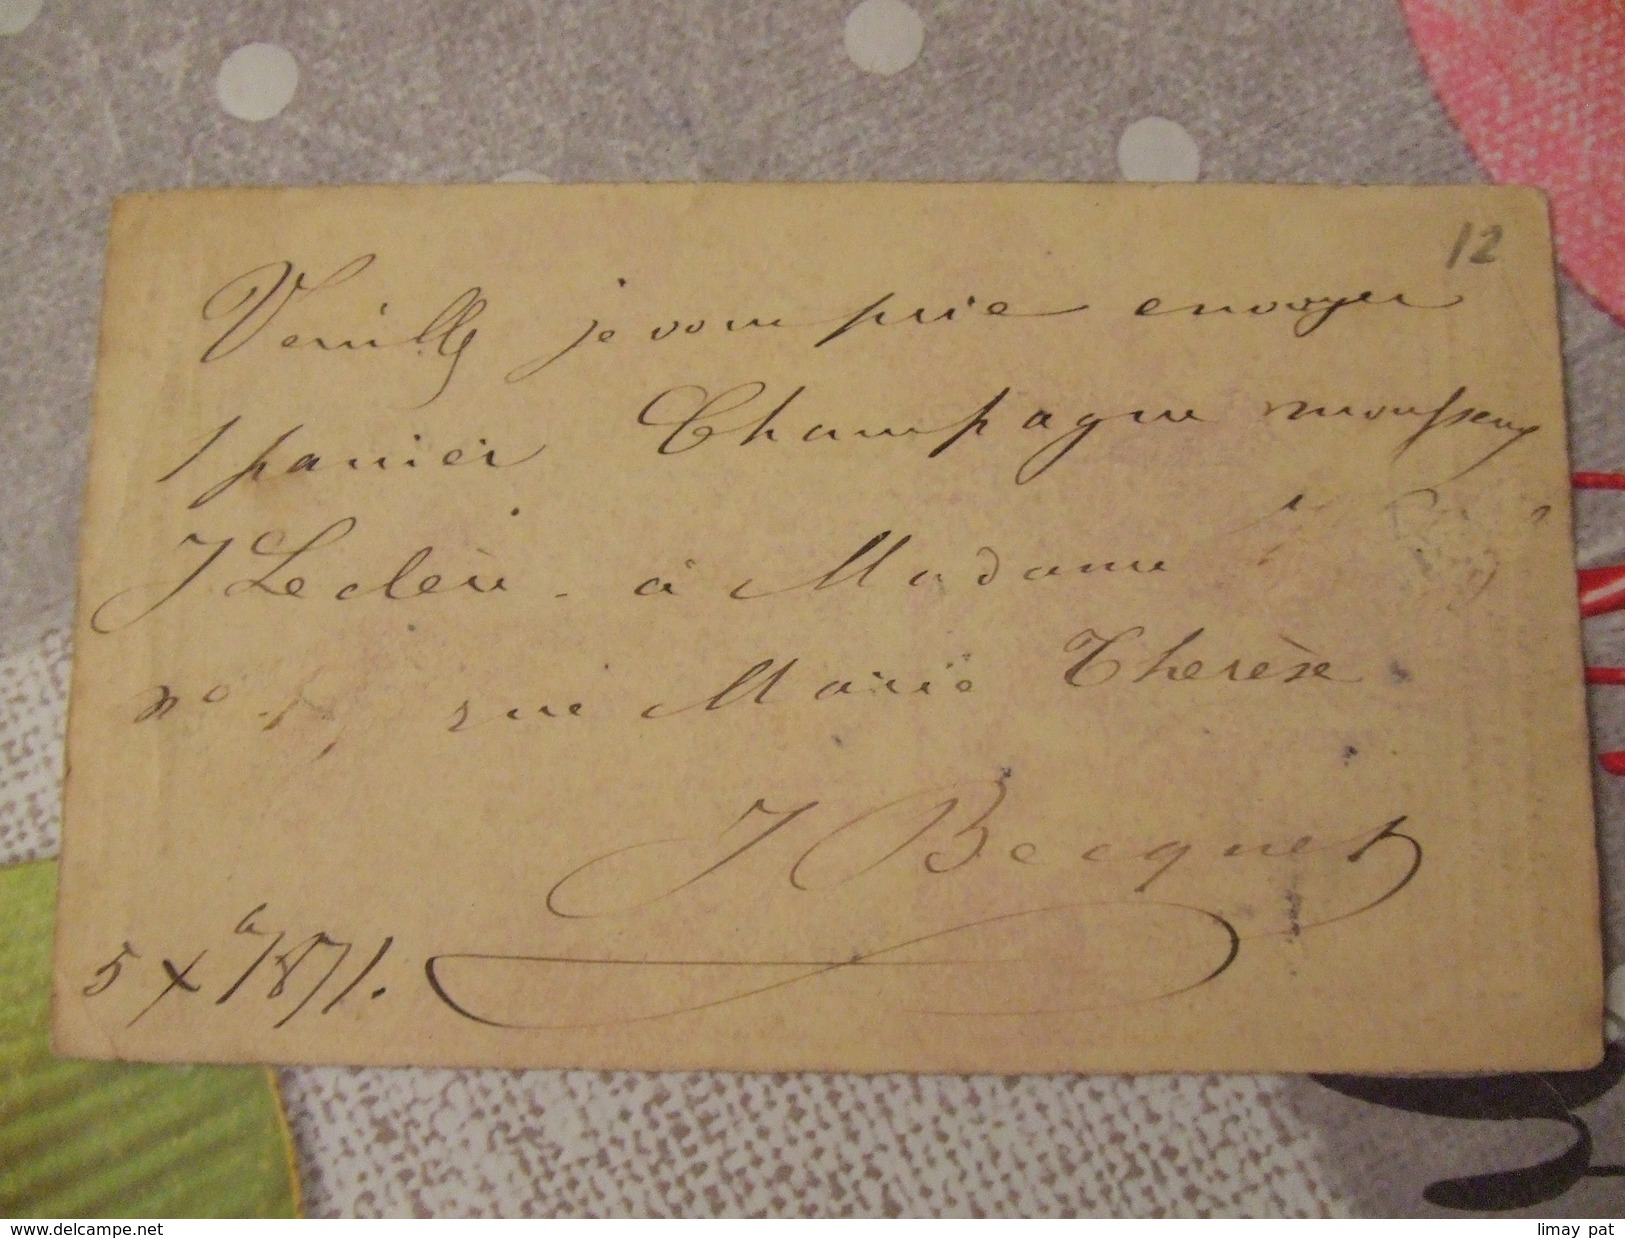 12
Veuillz je vous prie envoyer
1 panier Champagne mousseux
J Leclerc. à Madame
no rue Marie Therèse
J Becquet
5 Xa/1871.
www.delcampe.net
limay pat